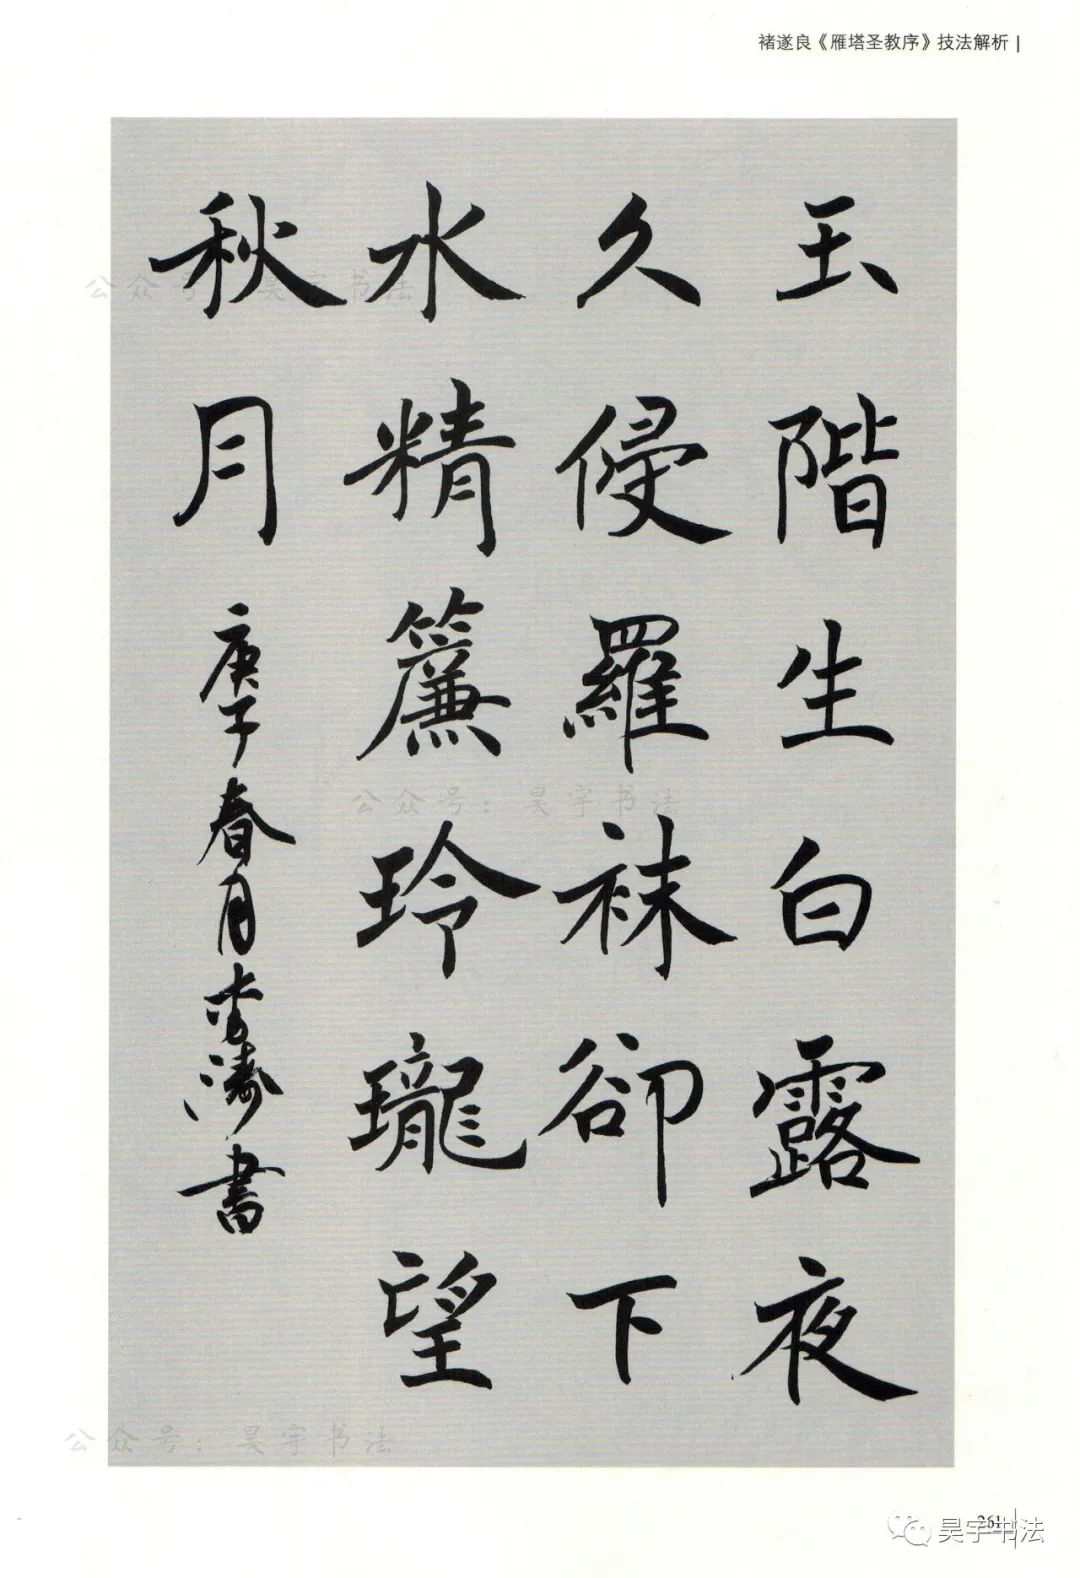 褚遂良《雁塔圣教序》技法解析
玉階生白露夜
久侵羅袜卻下
水精簾玲瓏望
秋月
庚子春月李濤書
公众号：昊宇书法
公众号：昊宇书法
公众号：昊宇书法
261
昊宇书法